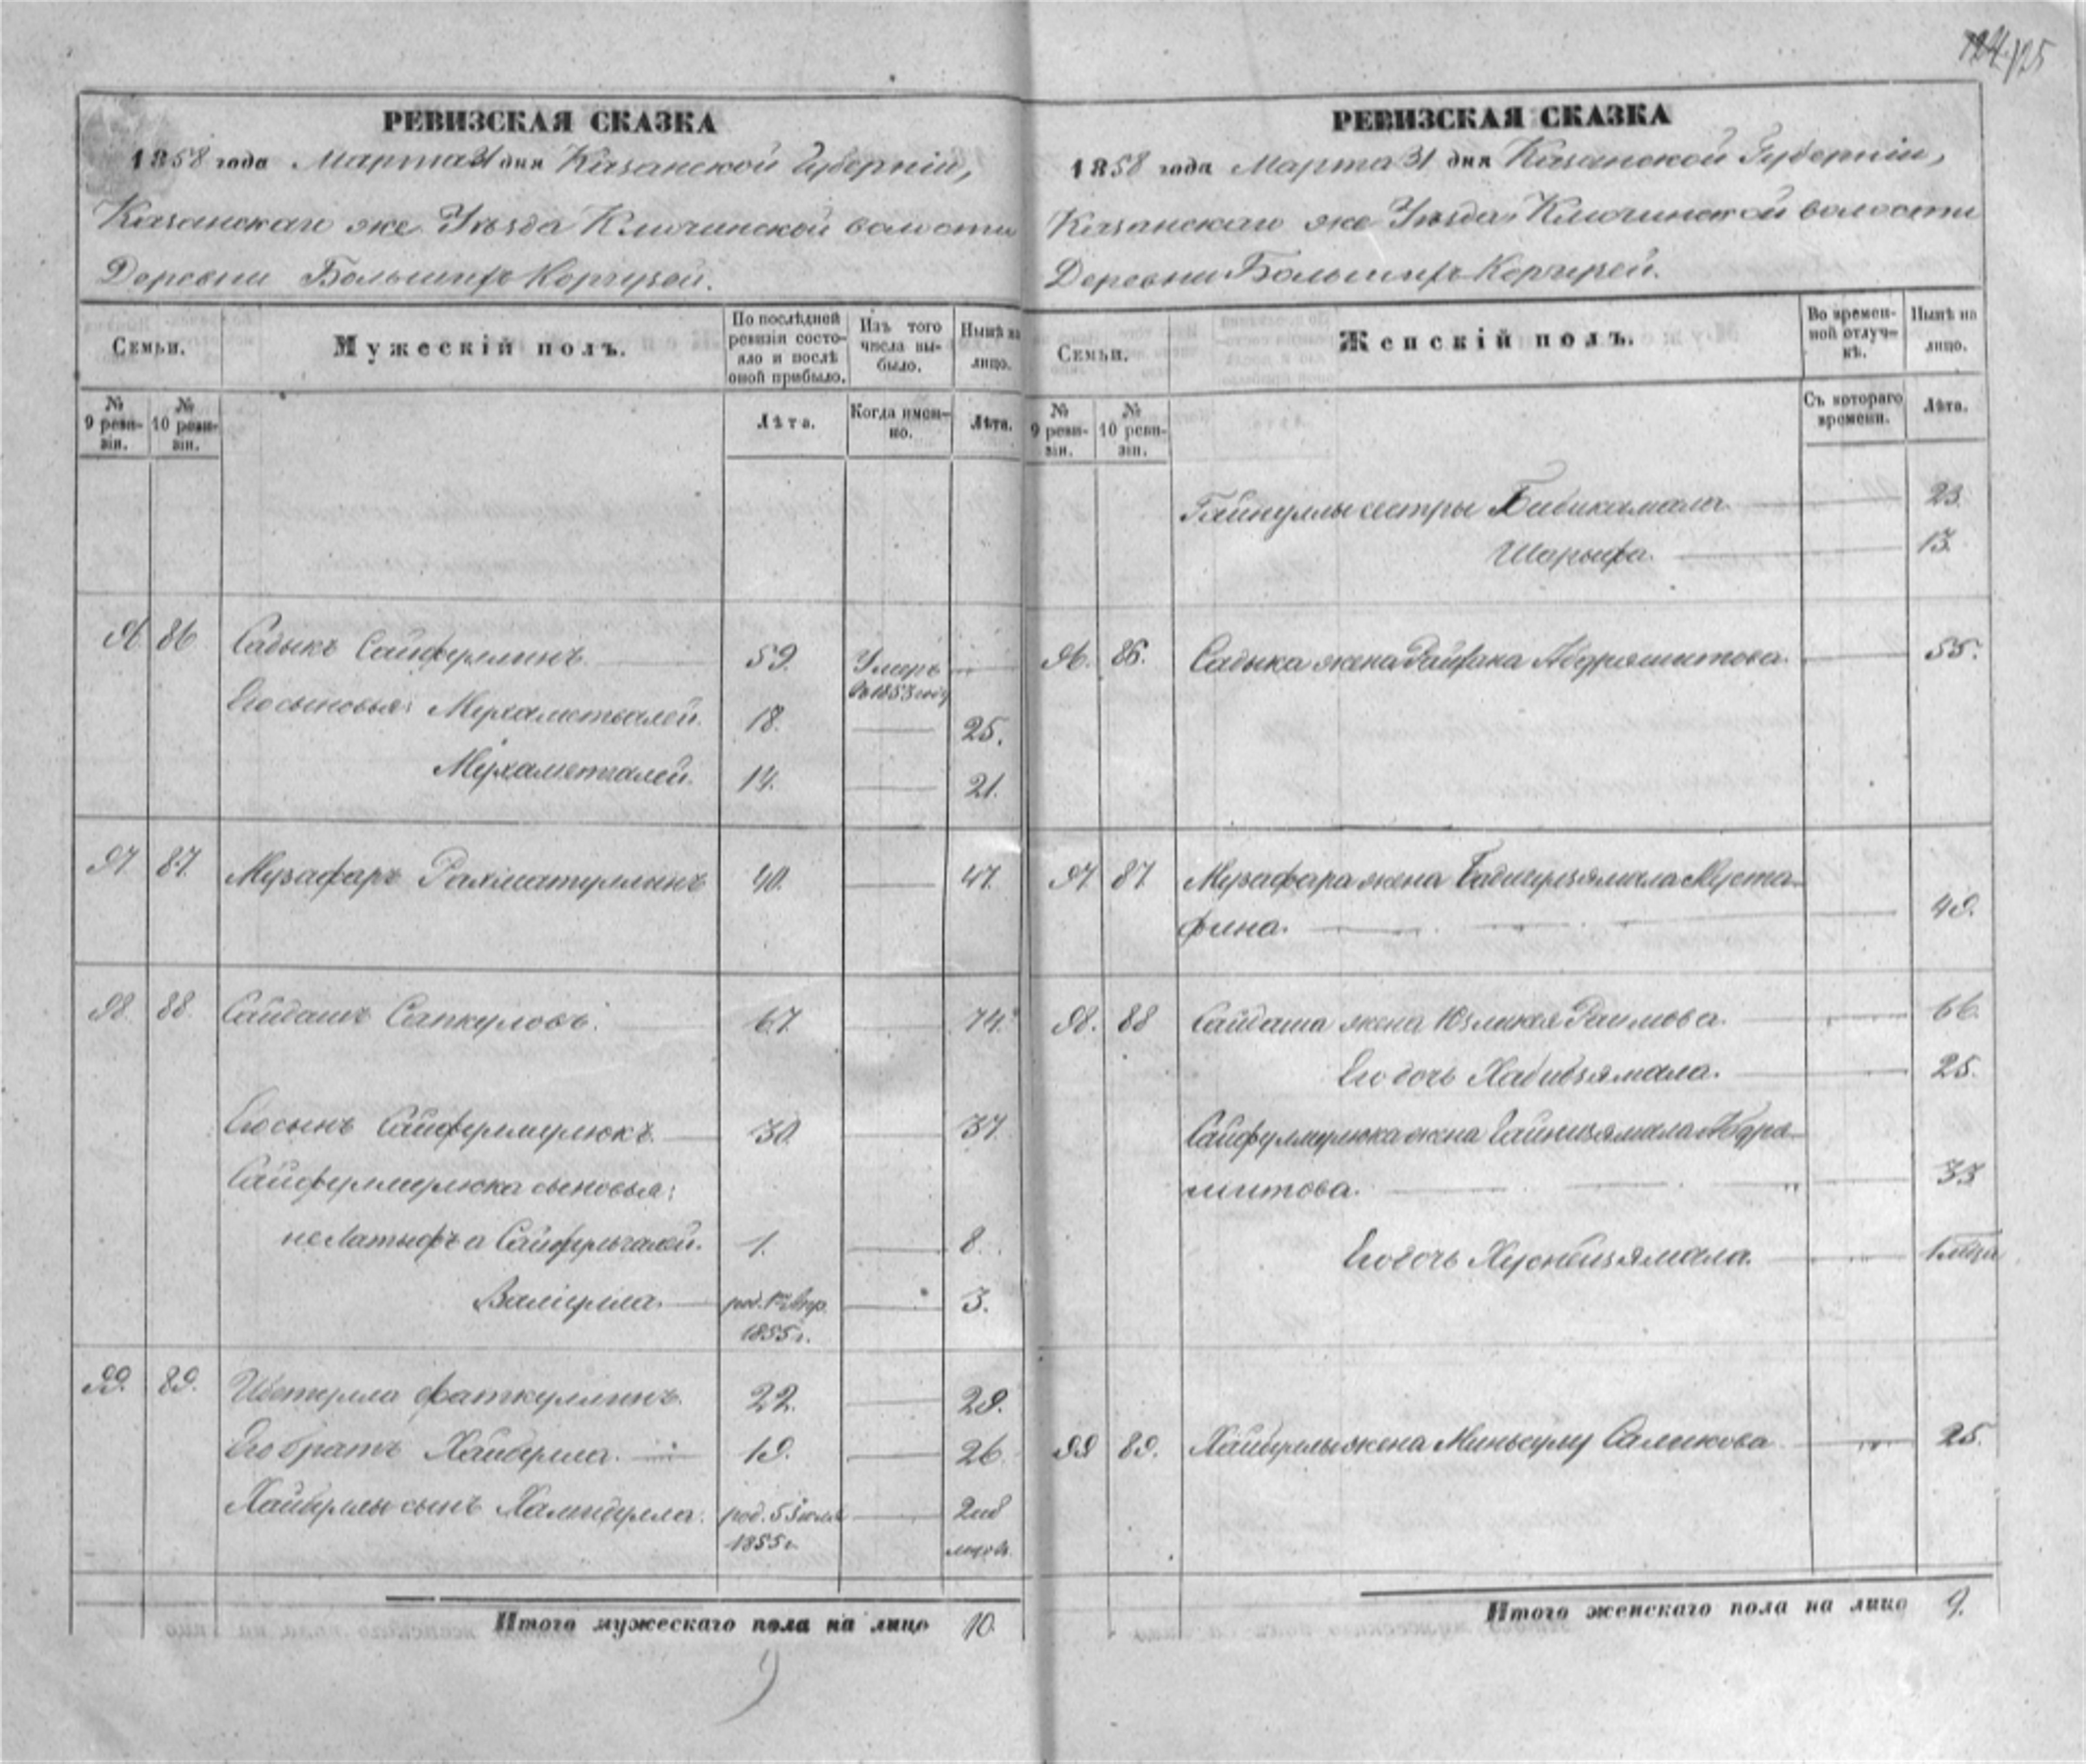 125
РЕВИЗСКАЯ СКАЗКА
1858 года Марта 31 дня Казанской Губерніи,
Казанскаго же Уѣзда Ключинской волости
Деревни Большихъ
Семьи.
Мужескій полъ.
По послѣдней ревизіи состояло и послѣ оной прибыло.
Изъ того числа выбыло.
Нынѣ на лицо.
№ 9 ревизіи.
№ 10 ревизіи.
Лѣта.
Когда именно.
Лѣта.
96 86 Садыкъ Сайфуллинъ 59. Умеръ
въ 1853 году
Его сыновья: Мухаметвалей. 18. 25.
Мухаметгалей. 14. 21.
97 87 Музафаръ Рахматуллинъ 40. 47.
98 88 Сайдашъ Сапкуловъ. 67. 74.
Его сынъ Сайфулмулюкъ. 30. 37.
Сайфулмулюка сыновья:
не Латыфъ а Сайфульгалей. 1. 8.
Валіулла. род. 1го Апр. 3.
1855 г.
99. 89. Фаткуллинъ. 22. 29.
Его братъ Хайбулла. 19. 26.
Хайбуллы сынъ Хамидулла. род. 5 Іюля 2 и 8
1855 г. мѣсяц.
Итого мужескаго пола на лицо 10.
РЕВИЗСКАЯ СКАЗКА
1858 года Марта 31 дня Казанской Губерніи,
Казанскаго же Уѣзда Ключинской волости
Деревни Большихъ
Семьи.
Женскій полъ.
Во временной отлучкѣ.
Нынѣ на лицо.
№ 9 ревизіи.
№ 10 ревизіи.
Съ котораго времени.
Лѣта.
Гайнуллы сестры Бибикамала 23.
Шарыфа. 13.
96. 86. Садыка жена Абдряшитова. 55.
97 87 Музафара жена Бадигульзямала Муста-
фина. 49.
98. 88 Сайдаша жена Раимова. 66.
Его дочь Хабибзямала. 25.
Сайфулмулюка жена Гайнизямала Абдра-
шитова. 33
Его дочь Хуснизямала. 1 мѣсяц
99 89. Хайбуллы жена Миньсулу Саликова 25.
Итого женскаго пола на лицо 9.